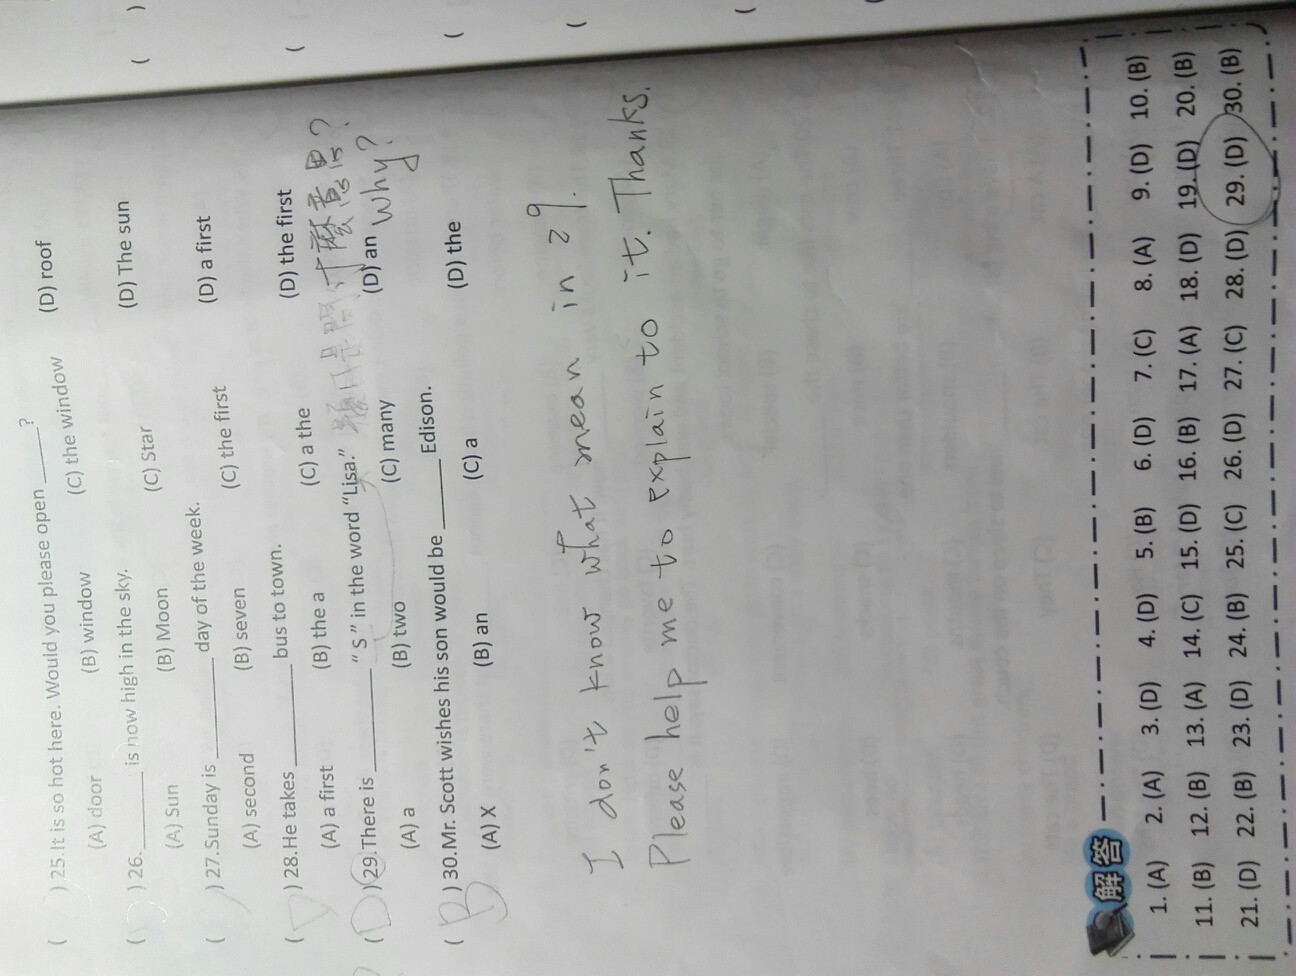 ( ) 25.It is so hot here. Would you please open ______?
(A) door (B) window (C) the window (D) roof
( ) 26.______ is now high in the sky.
(A) Sun (B) Moon (C) Star (D) The sun
( ) 27.Sunday is ______ day of the week.
(A) second (B) seven (C) the first (D) a first
(D) 28.He takes ______ bus to town.
(A) a first (B) the a (C) a the (D) the first
(D) 29.There is ______ "S" in the word "Lisa." 題目是問什麼意思?
(A) a (B) two (C) many (D) an Why?
(B) 30.Mr. Scott wishes his son would be ______ Edison.
(A) X (B) an (C) a (D) the
I don't know what mean in 29.
Please help me to explain to it. Thanks.
解答
1. (A) 2. (A) 3. (D) 4. (D) 5. (B) 6. (D) 7. (C) 8. (A) 9. (D) 10. (B)
11. (B) 12. (B) 13. (A) 14. (C) 15. (D) 16. (B) 17. (A) 18. (D) 19. (D) 20. (B)
21. (D) 22. (B) 23. (D) 24. (B) 25. (C) 26. (D) 27. (C) 28. (D) 29. (D) 30. (B)